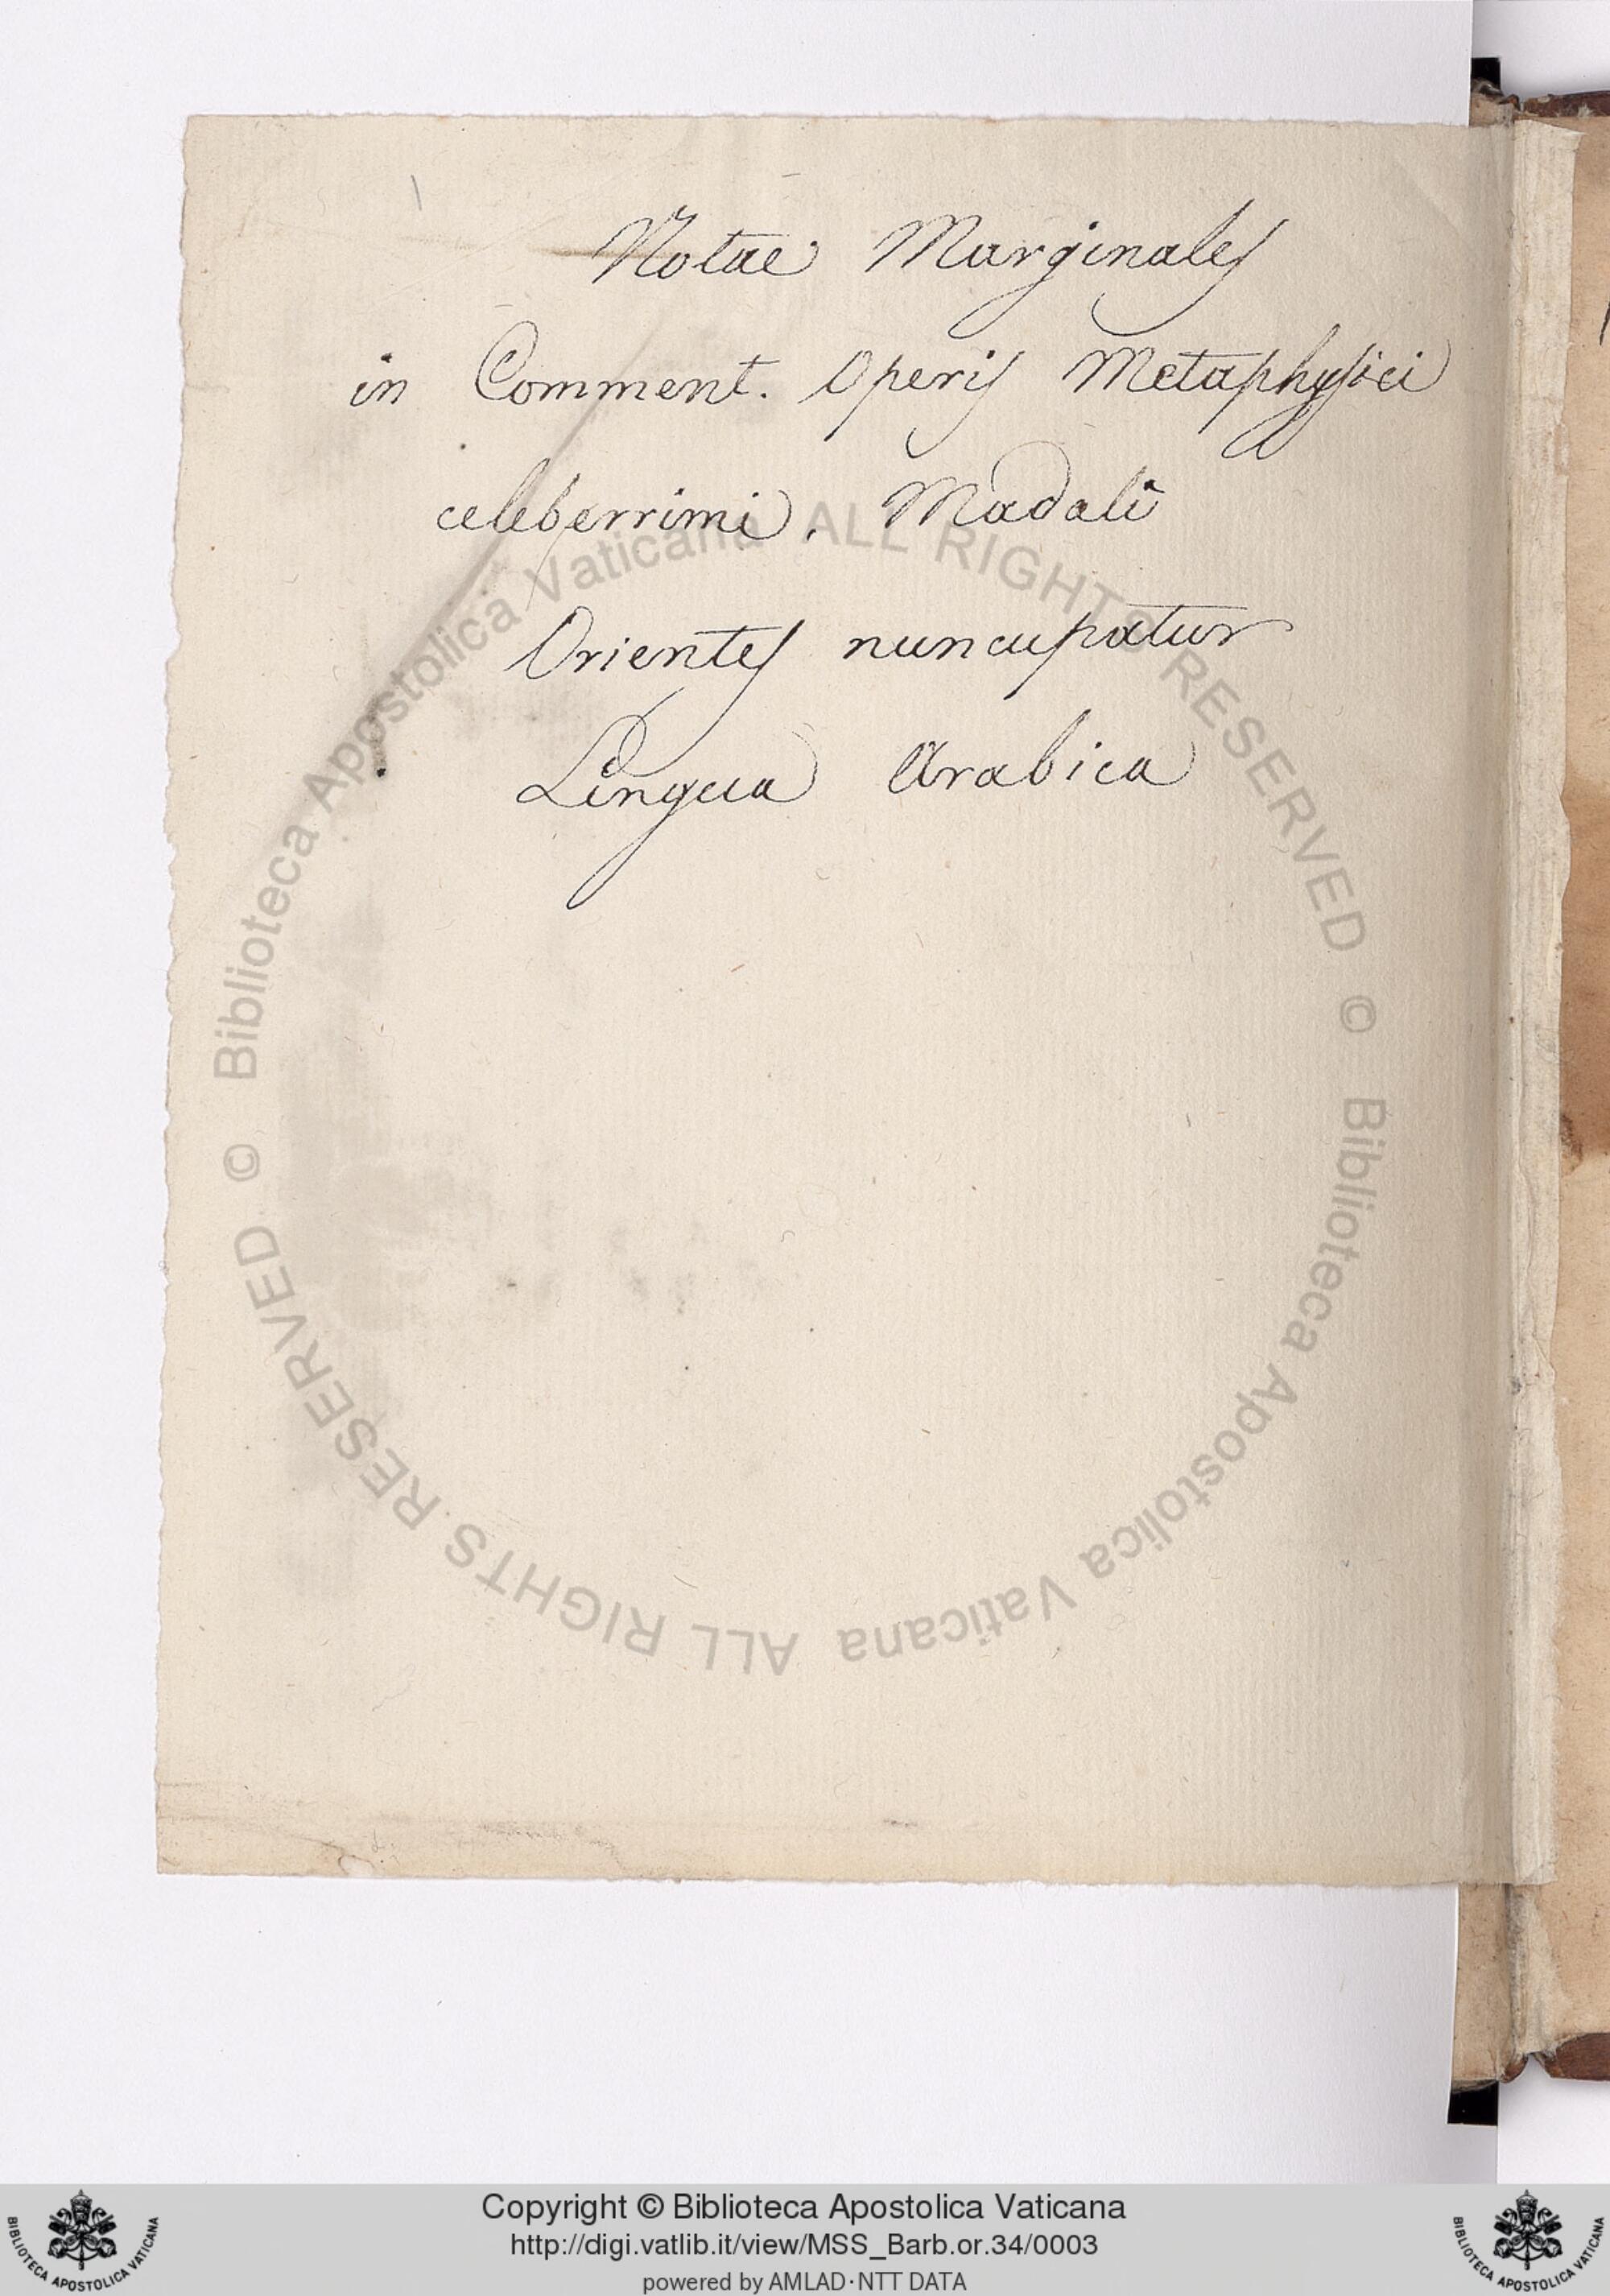 Notae Marginales
in Comment. Operis Metaphysici
celeberrimi. Madali
Orientes nuncupatur
Lingua Arabica
© Biblioteca Apostolica Vaticana ALL RIGHTS RESERVED
© Biblioteca Apostolica Vaticana ALL RIGHTS RESERVED
Copyright © Biblioteca Apostolica Vaticana
http://digi.vatlib.it/view/MSS_Barb.or.34/0003
powered by AMLAD·NTT DATA
BIBLIOTECA APOSTOLICA VATICANA
BIBLIOTECA APOSTOLICA VATICANA